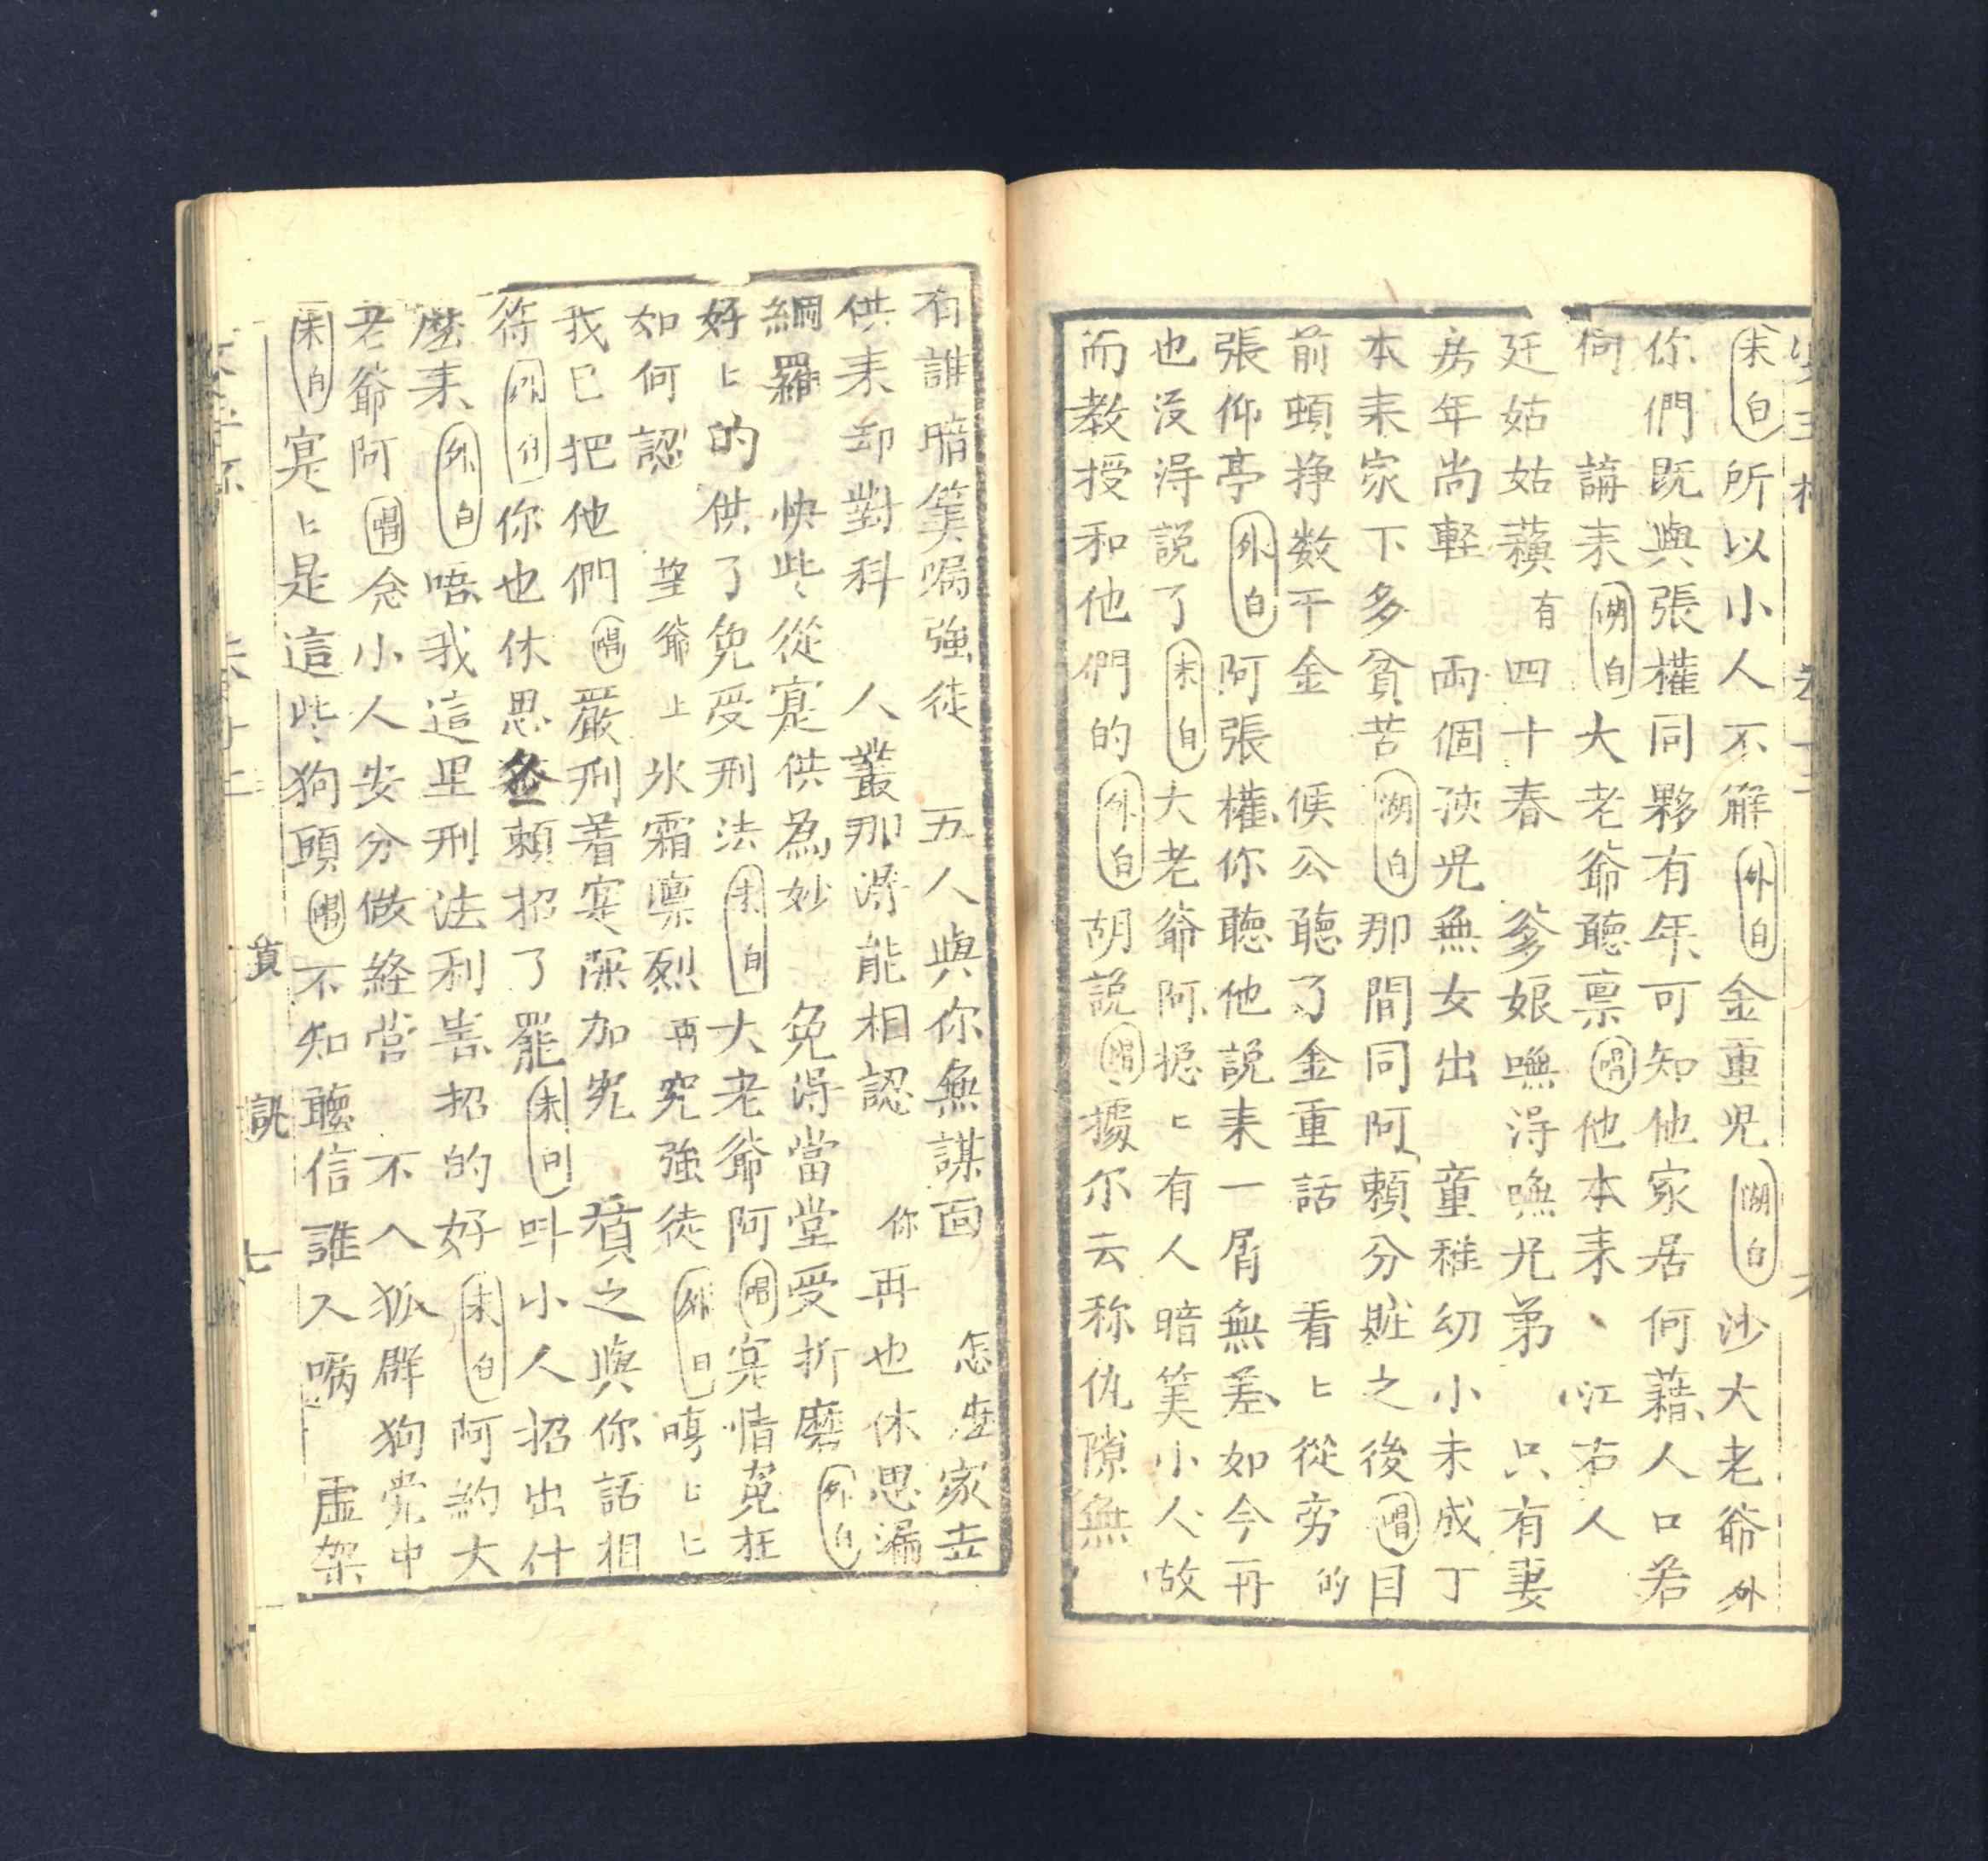 末白所以小人不觧外白金重児湖白沙大老爺外
你們既與張權同夥有年可知他家居何藉人口若
何講来湖白大老爺聽禀唱他本来丶江右人
廷姑姑蘓有四十春 爹娘嘸淂嘸兄弟 只有妻
房年尚軽 両個孩児無女出 童稚幼小未成丁
本来家下多貧苦湖白那間同阿頼分賍之後唱目
前頓挣数千金 候公聽了金重話 看〻從旁的
張仰亭外白阿張權你聽他説来一屑無差如今再
也没淂説了末白大老爺阿搃〻有人暗笑小人故
而教授和他們的外白胡説唱據尔云称仇隙無
有誰暗笑嘱強徒 五人與你無謀面 怎生家去
供来却對科 人叢那淂能相認 你再也休思漏
綱羅 快些從寔供為妙 免淂當堂受折磨外白
好〻的供了免受刑法末白大老爺阿唱寔情冤枉
如何認 望爺上氷霜凛烈再究強徒外白嘚〻〻
我已把他們唱嚴刑着寔深加究 質之與你話相
符 你也休思圖頼招了罷末白呌小人招出什
麼来外白唔我這里刑法利害招的好末白阿約大
老爺阿唱念小人安分做経営 不入狐群狗党中
末白寔〻是這些狗頭唱不知聽信誰人嘱 虚架
七